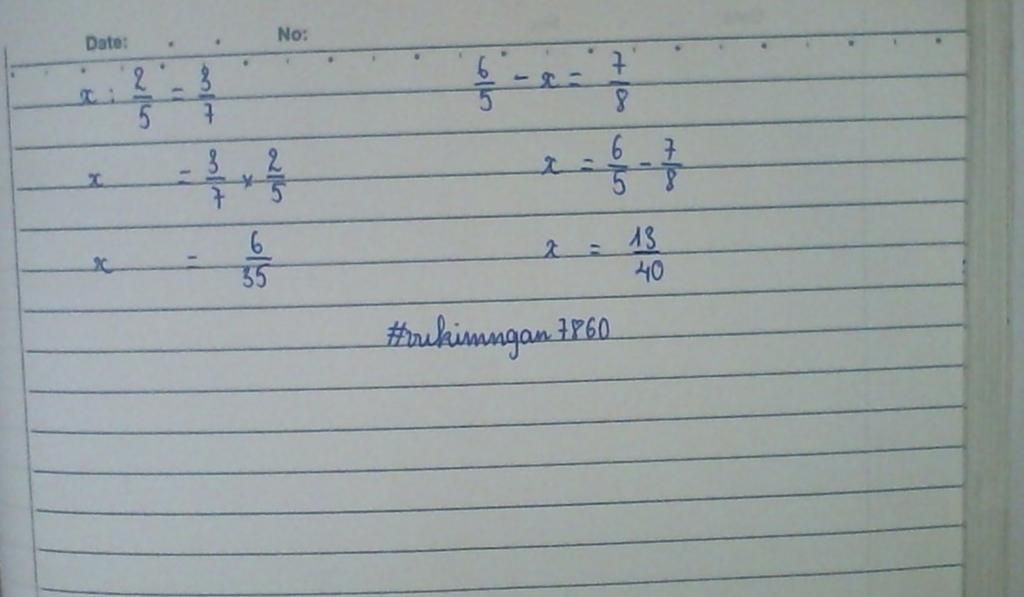 Date: No:
x : 2/5 = 3/7
x = 3/7 × 2/5
x = 6/35
6/5 - x = 7/8
x = 6/5 - 7/8
x = 13/40
#vukimngan7860